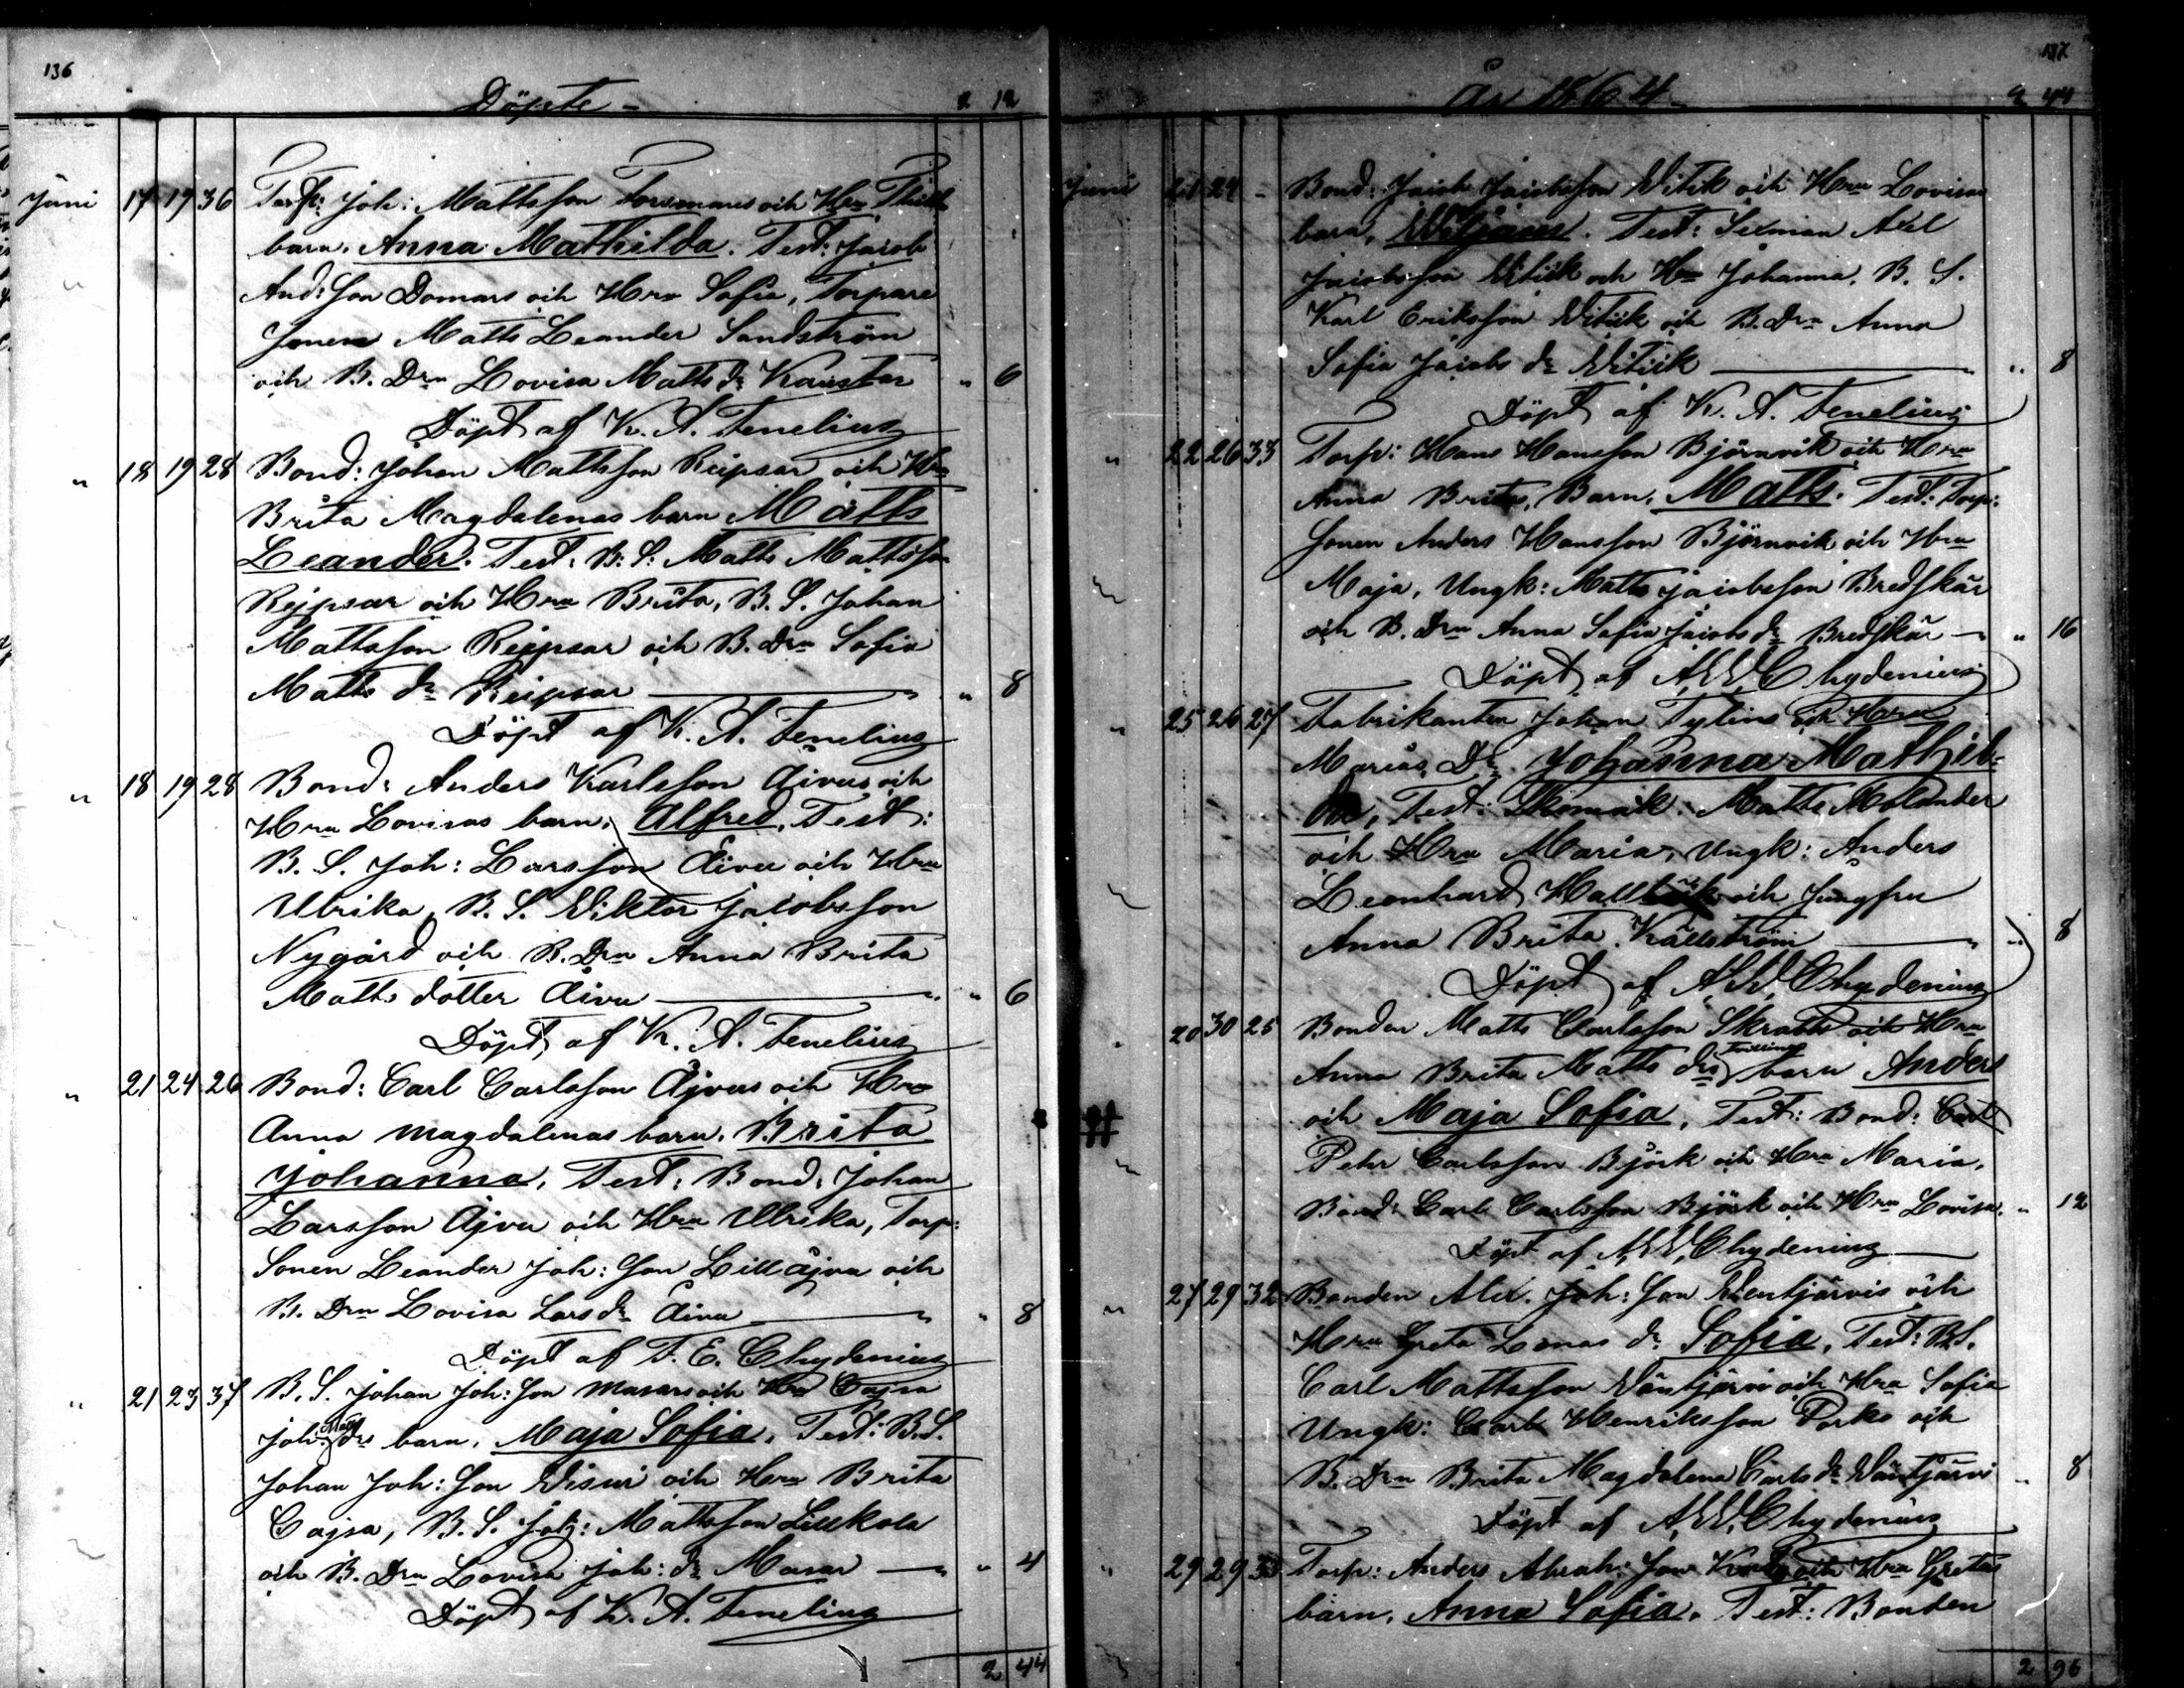 136
Döpte 2 12
Juni 17 19 36 Torp: Joh: Mattsson Forsmans och Hru
barn, Anna Mathilda. Test: Jacob
And:son Domars och Hru Sofia, Torpare
Sonen Matts Leander Sandström
och B. Drn Lovisa Matts dr Kaustar " 6
Döpt af K. A. Fenelius
" 18 19 28 Bond: Johan Mattsson Reipsar och Hru
Brita Magdalenas barn Matts
Leander. Test: B. S. Matts Mattsson
Rejpsar och Hru Brita, B. S. Johan
Mattsson Rejpsar och B. Drn Sofia
Matts dr Reipsar " 8
Döpt af K. A. Fenelius
" 18 19 28 Bond: Anders Karlsson Åivus och
Hru Lovisas barn, Alfred, Test:
B. S. Joh: Larsson Åivu och Hru
Ulrika, B. S. Wiktor Jacobsson
Nygård och B. Drn Anna Brita
Matts dotter Åivu " 6
Döpt af K. A. Fenelius
" 21 24 26 Bond: Carl Carlsson Åjvus och Hru
Anna Magdalenas barn, Brita
Johanna, Test: Bond: Johan
Larsson Åjvu och Hru Ulrika, Torp:
Sonen Leander Joh: Son Lillåjvu och
B. Drn Lovisa Lars dr Åivu " 8
Döpt af F. E. Chydenius
" 21 23 37 B. S. Johan Joh: Son Masars och Hru Cajsa
Joh: drs barn, Maja Sofia, Test: B. S.
Johan Joh: Son Wisuri och Hru Brita
Cajsa, B. S. Joh: Mattsson Lillkola
och B. Drn Lovisa Joh: dr Masar " 4
Döpt af K. A. Fenelius
2 44
137
År 1864 2 44
Juni 21 24 - Bond: Jacob Jacobsson Witik och Hru Lovisas
barn, . Test: Sexman Axel
Jacobsson Witick och Hru Johanna, B. S.
Karl Eriksson Witick och B. Drn Anna
Sofia Jacobs dr Witick " 8
Döpt af K. A. Fenelius
" 22 26 33 Torp: Hans Hansson Björnvik och Hru
Anna Britas, Barn, Matts. Test: Torp:
Sonen Anders Hansson Björnvik och Hru
Maja, Ungk: Matts Jacobsson Bredskär
och B. Drn Anna Sofia Jacobs dr Bredskär " 16
Döpt af A. W. Chydenius
" 25 26 27 Fabrikanten Johan Tylins och Hru
Marias Dr Johanna Mathil-
da, Test: Skomak: Matts Molander
och Hru Maria, Ungk: Anders
Leonhard och Jungfru
Anna Brita Källström " 8
Döpt af A. W. Chydenius
20 30 25 Bonden Matts Carlsson Skrabb och Hru
Anna Brita Matts drs tvilling barn Anders
och Maja Sofia, Test: Bond: Carl
Petter Carlsson Björk och Hru Maria,
Bond: Carl Carlsson Björk och Hru Lovisa. " 12
Döpt af A. W. Chydenius
" 27 29 32 Bonden Alex. Joh: Son Wentjärvis och
Hru Greta Lenas dr Sofia, Test: B. S.
Carl Mattsson Wäntjärvi och Hru Sofia
Ungk: Carl Henriksson Porko och
B. Drn Brita Magdalena Carls dr Wäntjärvi " 8
Döpt af A. W. Chydenius
" 29 29 33 Torp: Anders Abrah: Son och Hru Gretas
barn, Anna Sofia. Test: Bonden
2 96